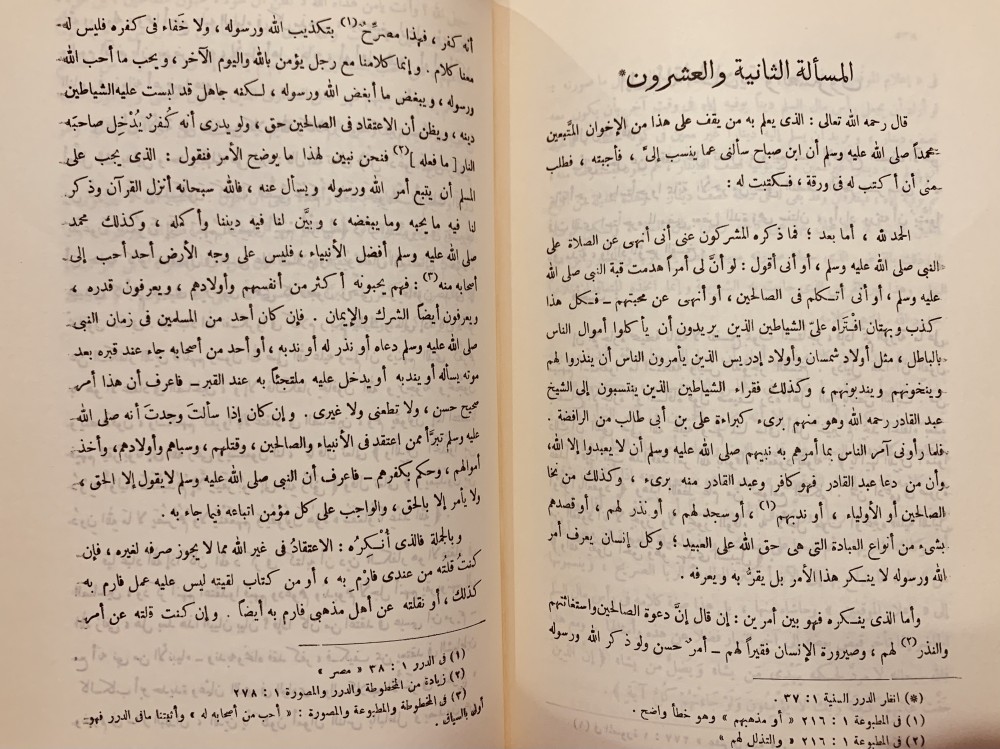 المسألة الثانية والعشرون*
قال رحمه الله تعالى : الذى يعلم به من يقف على هذا من الإخوان المتَّبعين
محمداً صلى الله عليه وسلم أن ابن صباح سألنى عما ينسب إلىَّ ، فأجبته ، فطلب
منى أن أكتب له فى ورقة ، فكتبت له :
الحمد لله ، أما بعد ؛ فما ذكره المشركون عنى أنى أنهى عن الصلاة على
النبى صلى الله عليه وسلم ، أو أنى أقول : لو أنَّ لى أمراً هدمت قبة النبى صلى الله
عليه وسلم ، أو أنى أتكلم فى الصالحين ، أو أنهى عن محبتهم – فكل هذا
كذب وبهتان افْتَرَاه علىَّ الشياطين الذين يريدون أن يأكلوا أموال الناس
بالباطل ، مثل أولاد شمسان وأولاد إدريس الذين يأمرون الناس أن ينذروا لهم
وينخونهم ويندبونهم ، وكذلك فقراء الشياطين الذين ينتسبون إلى الشيخ
عبد القادر رحمه الله وهو منهم برىء كبراءة على بن أبى طالب من الرافضة .
فلما رأونى آمر الناس بما أمرهم به نبيهم صلى الله عليه وسلم أن لا يعبدوا إلا الله،
وأن من دعا عبد القادر فهو كافر وعبد القادر منه برىء ، وكذلك من نخا
الصالحين أو الأولياء ، أو ندبهم(١) ، أو سجد لهم ، أو نذر لهم ، أو قصدهم
بشىء من أنواع العبادة التى هى حق الله على العبيد ؛ وكل إنسان يعرف أمر
الله ورسوله لا ينكر هذا الأمر بل يقرُّ به ويعرفه .
وأما الذى ينكره فهو بين أمرين : إن قال إنَّ دعوة الصالحين واستغاثتهم
والنذر(٢) لهم ، وصيرورة الإنسان فقيراً لهم – أمرٌ حسن ولو ذكر الله ورسوله
(*) انظر الدرر السنية ١ : ٣٧ .
(١) فى المطبوعة ١ : ٢١٦ « أو مذهبهم » وهو خطأ واضح .
(٢) فى المطبوعة ١ : ٢١٦ « والتذلل لهم »
أنه كفر ، فهذا مصرِّحٌ(١) بتكذيب الله ورسوله ، ولا خَفاء فى كفره فليس له
معنا كلام . وإنما كلامنا مع رجل يؤمن بالله واليوم الآخر ، ويحب ما أحب الله
ورسوله ، ويبغض ما أبغض الله ورسوله ، لكنه جاهل قد لبست عليه الشياطين
دينه ، ويظن أن الاعتقاد فى الصالحين حق ، ولو يدرى أنه كُفرٌ يُدْخِل صاحبَه
النار [ ما فعله ](٢) فنحن نبين لهذا ما يوضح الأمر فنقول : الذى يجب على
المسلم أن يتبع أمر الله ورسوله ويسأل عنه ، فالله سبحانه أنزل القرآن وذكر
لنا فيه ما يحبه وما يبغضه ، وبيَّن لنا فيه ديننا وأكمله ، وكذلك محمد
صلى الله عليه وسلم أفضل الأنبياء ، فليس على وجه الأرض أحد أحب إلى
أصحابه منه(٣) : فهم يحبونه أكثر من أنفسهم وأولادهم ، ويعرفون قدره ،
ويعرفون أيضاً الشرك والإيمان . فإن كان أحد من المسلمين فى زمان النبى
صلى الله عليه وسلم دعاه أو نذر له أو ندبه ، أو أحد من أصحابه جاء عند قبره بعد
موته يسأله أو يندبه أو يدخل عليه ملتجئاً به عند القبر – فاعرف أن هذا أمر
صحيح حسن ، ولا تطعنى ولا غيرى . وإن كان إذا سألتَ وجدتَ أنه صلى الله
عليه وسلم تبرَّأ ممن اعتقد فى الأنبياء والصالحين ، وقتلهم ، وسباهم وأولادهم، وأخذ
أموالهم ، وحكم بكفرهم – فاعرف أن النبى صلى الله عليه وسلم لا يقول إلا الحق ،
ولا يأمر إلا بالحق ، والواجب على كل مؤمن اتباعه فيما جاء به .
وبالجملة فالذى أُنْكِرُه : الاعتقادُ فى غير الله مما لا يجوز صرفه لغيره ، فإن
كنتُ قلتُه من عندى فارْمِ به ، أو من كتاب لقيته ليس عليه عمل فارم به
كذلك ، أو نقلته عن أهل مذهبى فارم به أيضاً . وإن كنت قلته عن أمر
(١) فى الدرر ١ : ٣٨ « مصر » .
(٢) زيادة من المخطوطة والدرر والمصورة ١ : ٢٧٨
(٣) فى المخطوطة والمطبوعة والمصورة : « أحب من أصحابه له » وأثبتنا مافى الدرر فهو
أولى بالسياق .